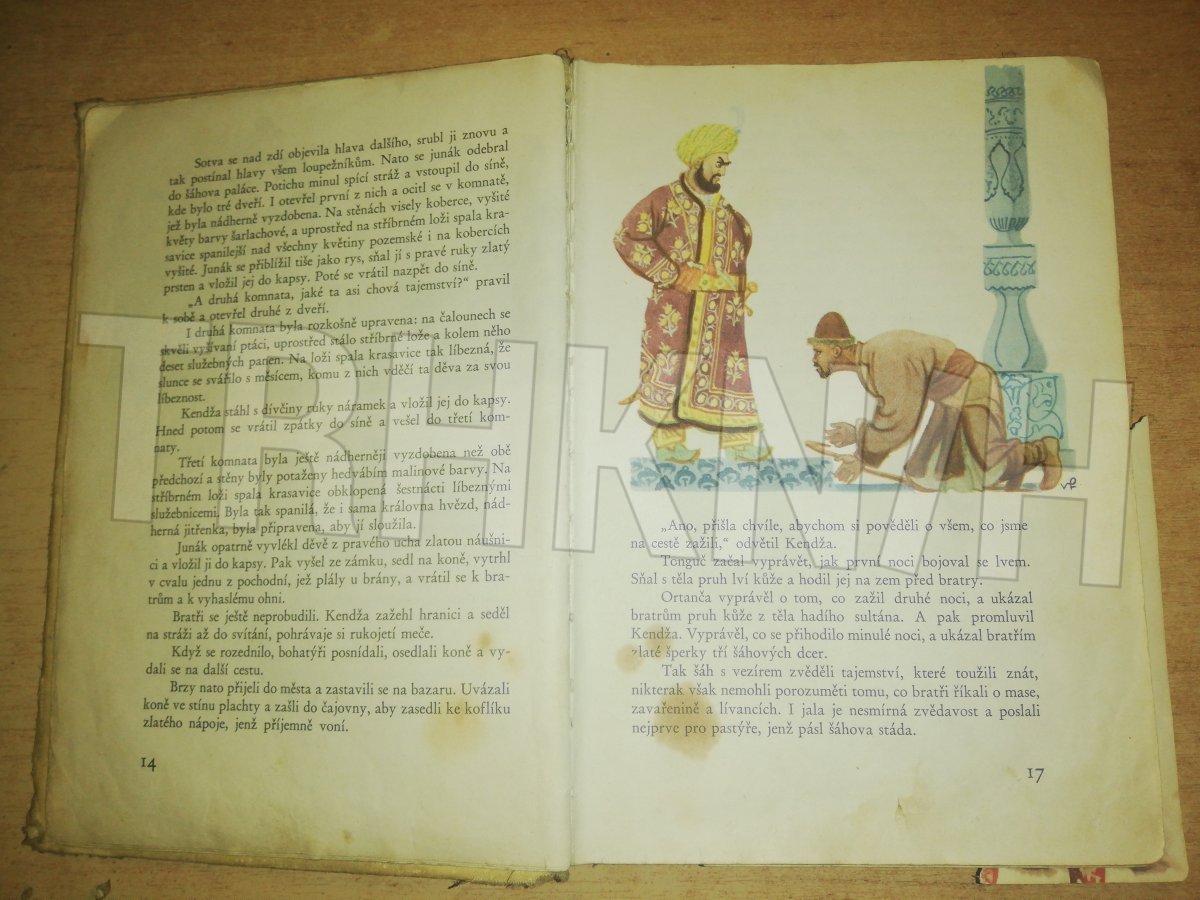 Sotva se nad zdí objevila hlava dalšího, srubl ji znovu a
tak postínal hlavy všem loupežníkům. Nato se junák odebral
do šáhova paláce. Potichu minul spící stráž a vstoupil do síně,
kde bylo tré dveří. I otevřel první z nich a ocitl se v komnatě,
jež byla nádherně vyzdobena. Na stěnách visely koberce, vyšité
květy barvy šarlachové, a uprostřed na stříbrném loži spala kra-
savice spanilejší nad všechny květiny pozemské i na kobercích
vyšité. Junák se přiblížil tiše jako rys, sňal jí s pravé ruky zlatý
prsten a vložil jej do kapsy. Poté se vrátil nazpět do síně.
„A druhá komnata, jaké ta asi chová tajemství?“ pravil
k sobě a otevřel druhé z dveří.
I druhá komnata byla rozkošně upravena: na čalounech se
skvěli vyšívaní ptáci, uprostřed stálo stříbrné lože a kolem něho
deset služebných panen. Na loži spala krasavice tak líbezná, že
slunce se svářilo s měsícem, komu z nich vděčí ta děva za svou
líbeznost.
Kendža stáhl s dívčiny ruky náramek a vložil jej do kapsy.
Hned potom se vrátil zpátky do síně a vešel do třetí kom-
naty.
Třetí komnata byla ještě nádherněji vyzdobena než obě
předchozí a stěny byly potaženy hedvábím malinové barvy. Na
stříbrném loži spala krasavice obklopená šestnácti líbeznými
služebnicemi. Byla tak spanilá, že i sama královna hvězd, nád-
herná jitřenka, byla připravena, aby jí sloužila.
Junák opatrně vyvlékl děvě z pravého ucha zlatou náušni-
ci a vložil ji do kapsy. Pak vyšel ze zámku, sedl na koně, vytrhl
v cvalu jednu z pochodní, jež plály u brány, a vrátil se k bra-
trům a k vyhaslému ohni.
Bratři se ještě neprobudili. Kendža zažehl hranici a seděl
na stráži až do svítání, pohrávaje si rukojetí meče.
Když se rozednilo, bohatýři posnídali, osedlali koně a vy-
dali se na další cestu.
Brzy nato přijeli do města a zastavili se na bazaru. Uvázali
koně ve stínu plachty a zašli do čajovny, aby zasedli ke koflíku
zlatého nápoje, jenž příjemně voní.
14
VR
„Ano, přišla chvíle, abychom si pověděli o všem, co jsme
na cestě zažili,“ odvětil Kendža.
Tonguč začal vyprávět, jak první noci bojoval se lvem.
Sňal s těla pruh lví kůže a hodil jej na zem před bratry.
Ortanča vyprávěl o tom, co zažil druhé noci, a ukázal
bratrům pruh kůže z těla hadího sultána. A pak promluvil
Kendža. Vyprávěl, co se přihodilo minulé noci, a ukázal bratřím
zlaté šperky tří šáhových dcer.
Tak šáh s vezírem zvěděli tajemství, které toužili znát,
nikterak však nemohli porozuměti tomu, co bratři říkali o mase,
zavařenině a lívancích. I jala je nesmírná zvědavost a poslali
nejprve pro pastýře, jenž pásl šáhova stáda.
17
TRHKNIH